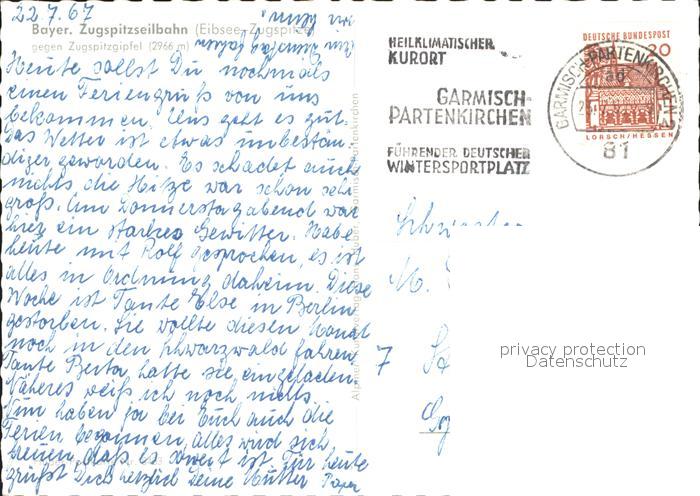 22.7.67
Bayer. Zugspitzseilbahn (Eibsee-Zugspitze)
gegen Zugspitzgipfel (2966 m)
Heute sollst Du nochmals
einen Feriengruß von uns
bekommen. Uns geht es gut.
Das Wetter ist etwas unbestän-
diger geworden. Es schadet auch
nichts, die Hitze war schon sehr
groß. Am Donnerstagabend war
hier ein starkes Gewitter. Habe
heute mit Rolf gesprochen, es ist
alles in Ordnung daheim. Diese
Woche ist Tante Else in Berlin
gestorben. Sie wollte diesen Monat
noch in den Schwarzwald fahren
Tante Berta hatte sie eingeladen
Näheres weiß ich noch nicht.
Nun haben ja bei Euch auch die
Ferien begonnen, alles wird sich
freuen, daß es soweit ist. Für heute
grüßt Dich herzlich Deine Mutter
HEILKLIMATISCHER
KURORT
GARMISCH-
PARTENKIRCHEN
FÜHRENDER DEUTSCHER
WINTERSPORTPLATZ
GARMISCH-PARTENKIRCHEN 2
ad
81
DEUTSCHE BUNDESPOST
20
LORSCH/HESSEN
Schwester
M.
7
privacy protection
Datenschutz